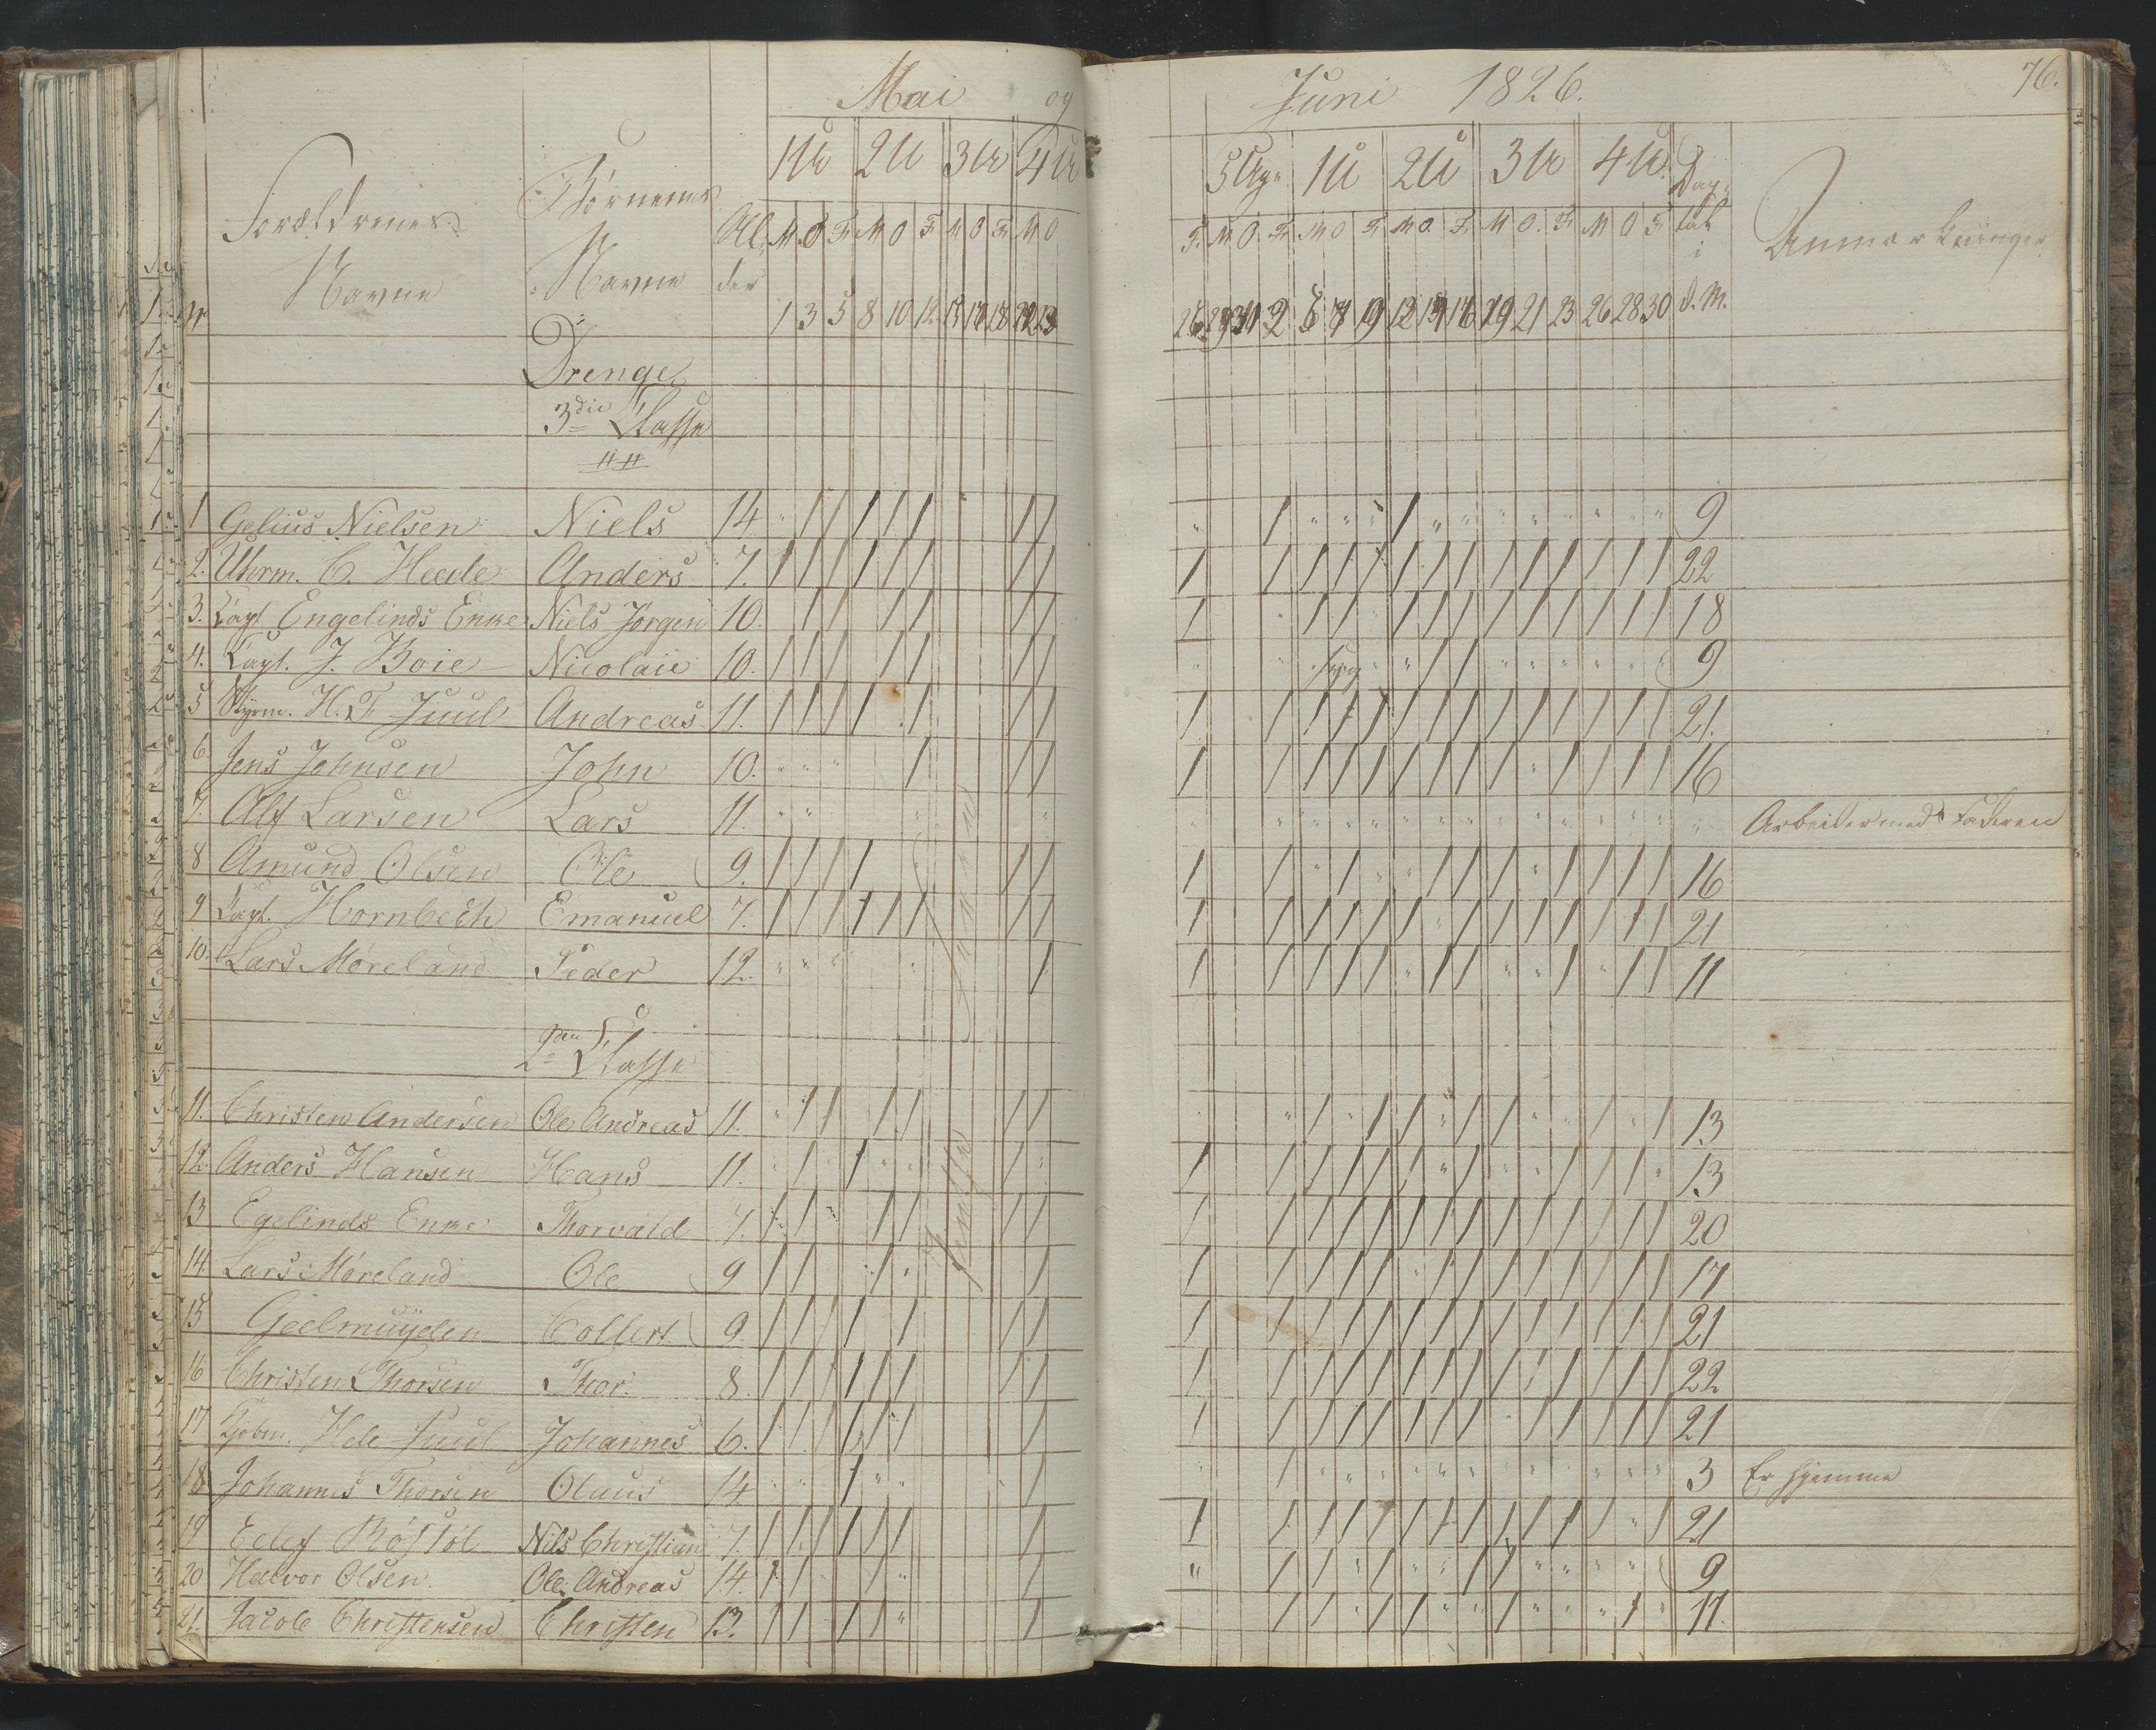 Mai og Juni 1826. 76.
Forældrenes Navne Børnenes Navne Al- der 1 U 2 U 3 U 4 U 5 Uge 1 U 2 U 3 U 4 U Dage tal i d. M. Anmærkninger
M O F M O F M O F M O F M O F M O F M O F M O F M O F
1 3 5 8 10 12 15 17 18 22 23 26 29 31 2 5 7 9 12 14 16 19 21 23 26 28 30
Drenge
3die Classe
1 Gelius Nielsen Niels 14 9
2. Uhrm. C. Heede Anders 7. 22
3. Capt Engelinds Enke Niels Jørgen 10. 18
4. Capt. J. Boie Nicolaie 10. syg 9
5 Styrm. H. F Juul Andreas 11. 21.
6 Jens Johnsen John 10. 16
7. Alf Larsen Lars 11. Arbeider med Faderen
8 Amund Olsen Ole 9. 16
9 Capt. Hornbech Emanuel 7. 21
10. Lars Møreland Peder 12. 11
2den Classe
11. Christen Andersen Ole Andreas 11. 13
12. Anders Hansen Hans 11. 13
13 Egelinds Enke Thorvald 7. 20
14 Lars Møreland Ole 9 17
15 Geelmuyden Collert 9. 21
16 Christen Thorsen Thor. 8. 22
17 Kjøbm. Hele Juul Johannes 6. 21
18 Johannes Thorsen Olaus 14. 3 Er hjemme
19 Eilef Røstøl Nils Christian 7. 21
20 Halvor Olsen. Ole Andreas 14. 9
21. Jacob Christensen Christen 13. 11.